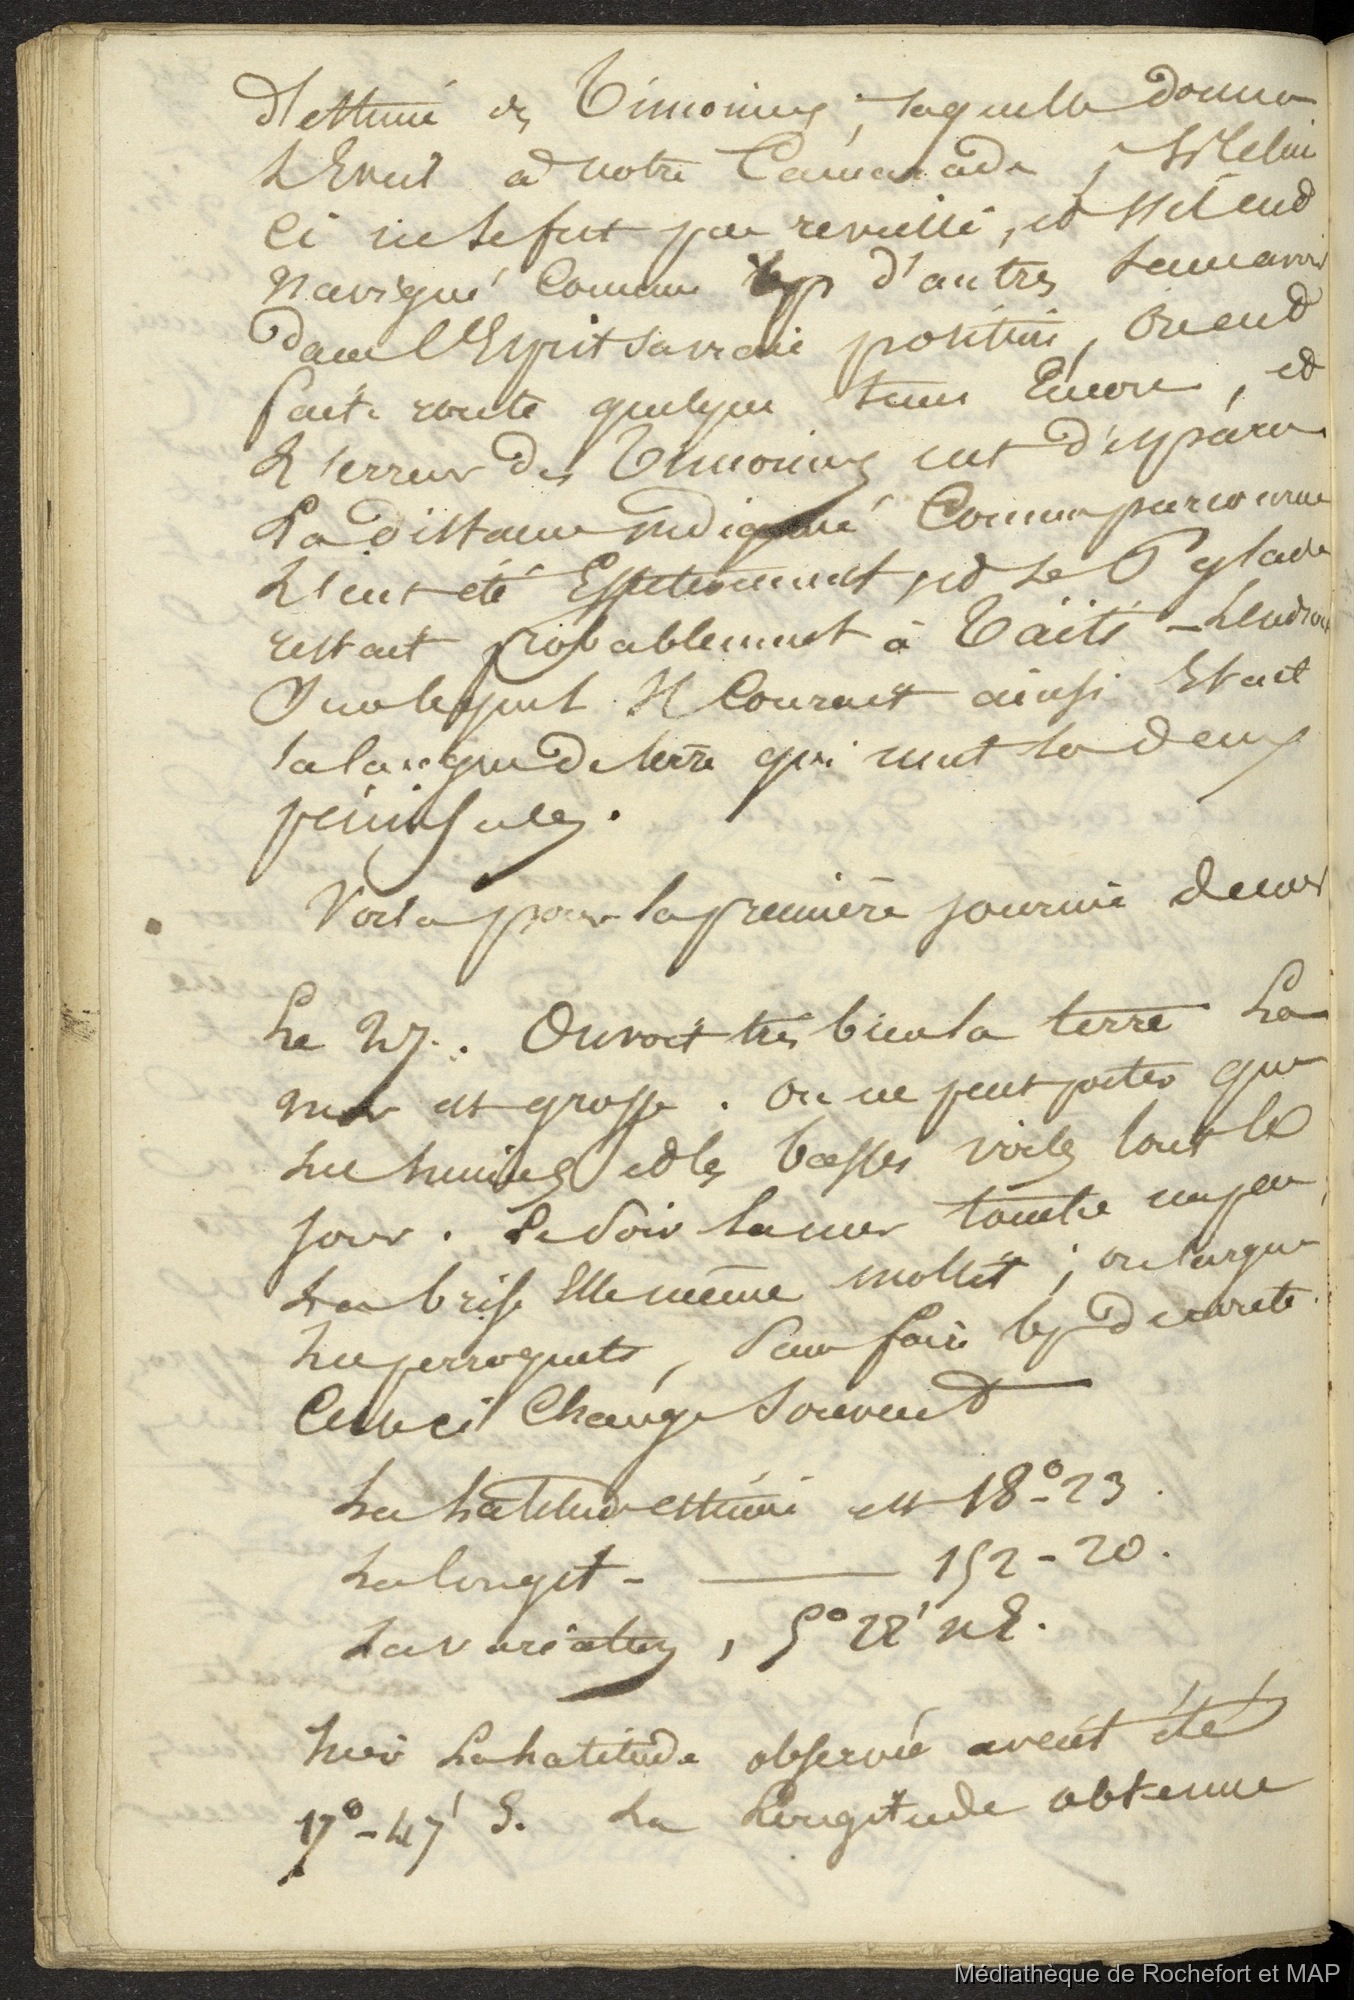 d'estime des Timoniers, laquelle donna
L'Eveil à notre Camarade, si celui
ci ne se fut pas reveillé, et s'il eut
navigué Comme les d'autres sans avoir
dans l'Esprit sa vraie position, On eut
fait route quelque tems Encore, et
L'erreur des Timoniers eut disparu
La distance indiquée Comme parcourue
L'eut été Effectivement, et Le Pylade
restait probablement à Taïti - L'endroit
Sur lequel Il Courait ainsi Etait
la langue de terre qui unit les deux
péninsules.
Voila pour la première journée de mer
Le 27. On voit très bien la terre La
mer est grosse. On ne peut porter que
les huniers et les basses voiles tout le
jour. Le Soir la mer tombe un peu,
La brise Elle même mollit ; on largue
Les perroquets, Sans faire les de route.
Celle ci Change Souvent
La Latitude estimée est 18° - 23.
La longit - 152 - 20.
La variation, 5° 28' NE.
hier La Latitude observée avait été
17° - 47' S. La Longitude obtenue
Médiathèque de Rochefort et MAP